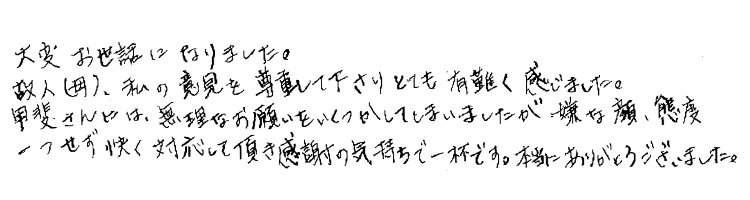 大変お世話になりました。
故人(母)、私の意見を尊重して下さりとても有難く感じました。
甲斐さんには、無理なお願いをいくつかしてしまいましたが嫌な顔、態度
一つせず快く対応して頂き感謝の気持ちで一杯です。本当にありがとうございました。